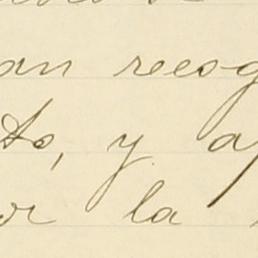 an recog
to, y a
or la